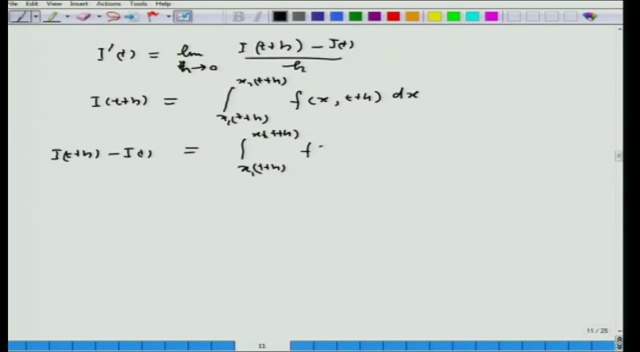 File Edit View Insert Actions Tools Help
B I U
I'(t) = lim h→0 I(t+h) - I(t) / h
I(t+h) = ∫ x₁(t+h) x₂(t+h) f(x, t+h) dx
I(t+h) - I(t) = ∫ x₁(t+h) f
11 / 25
11